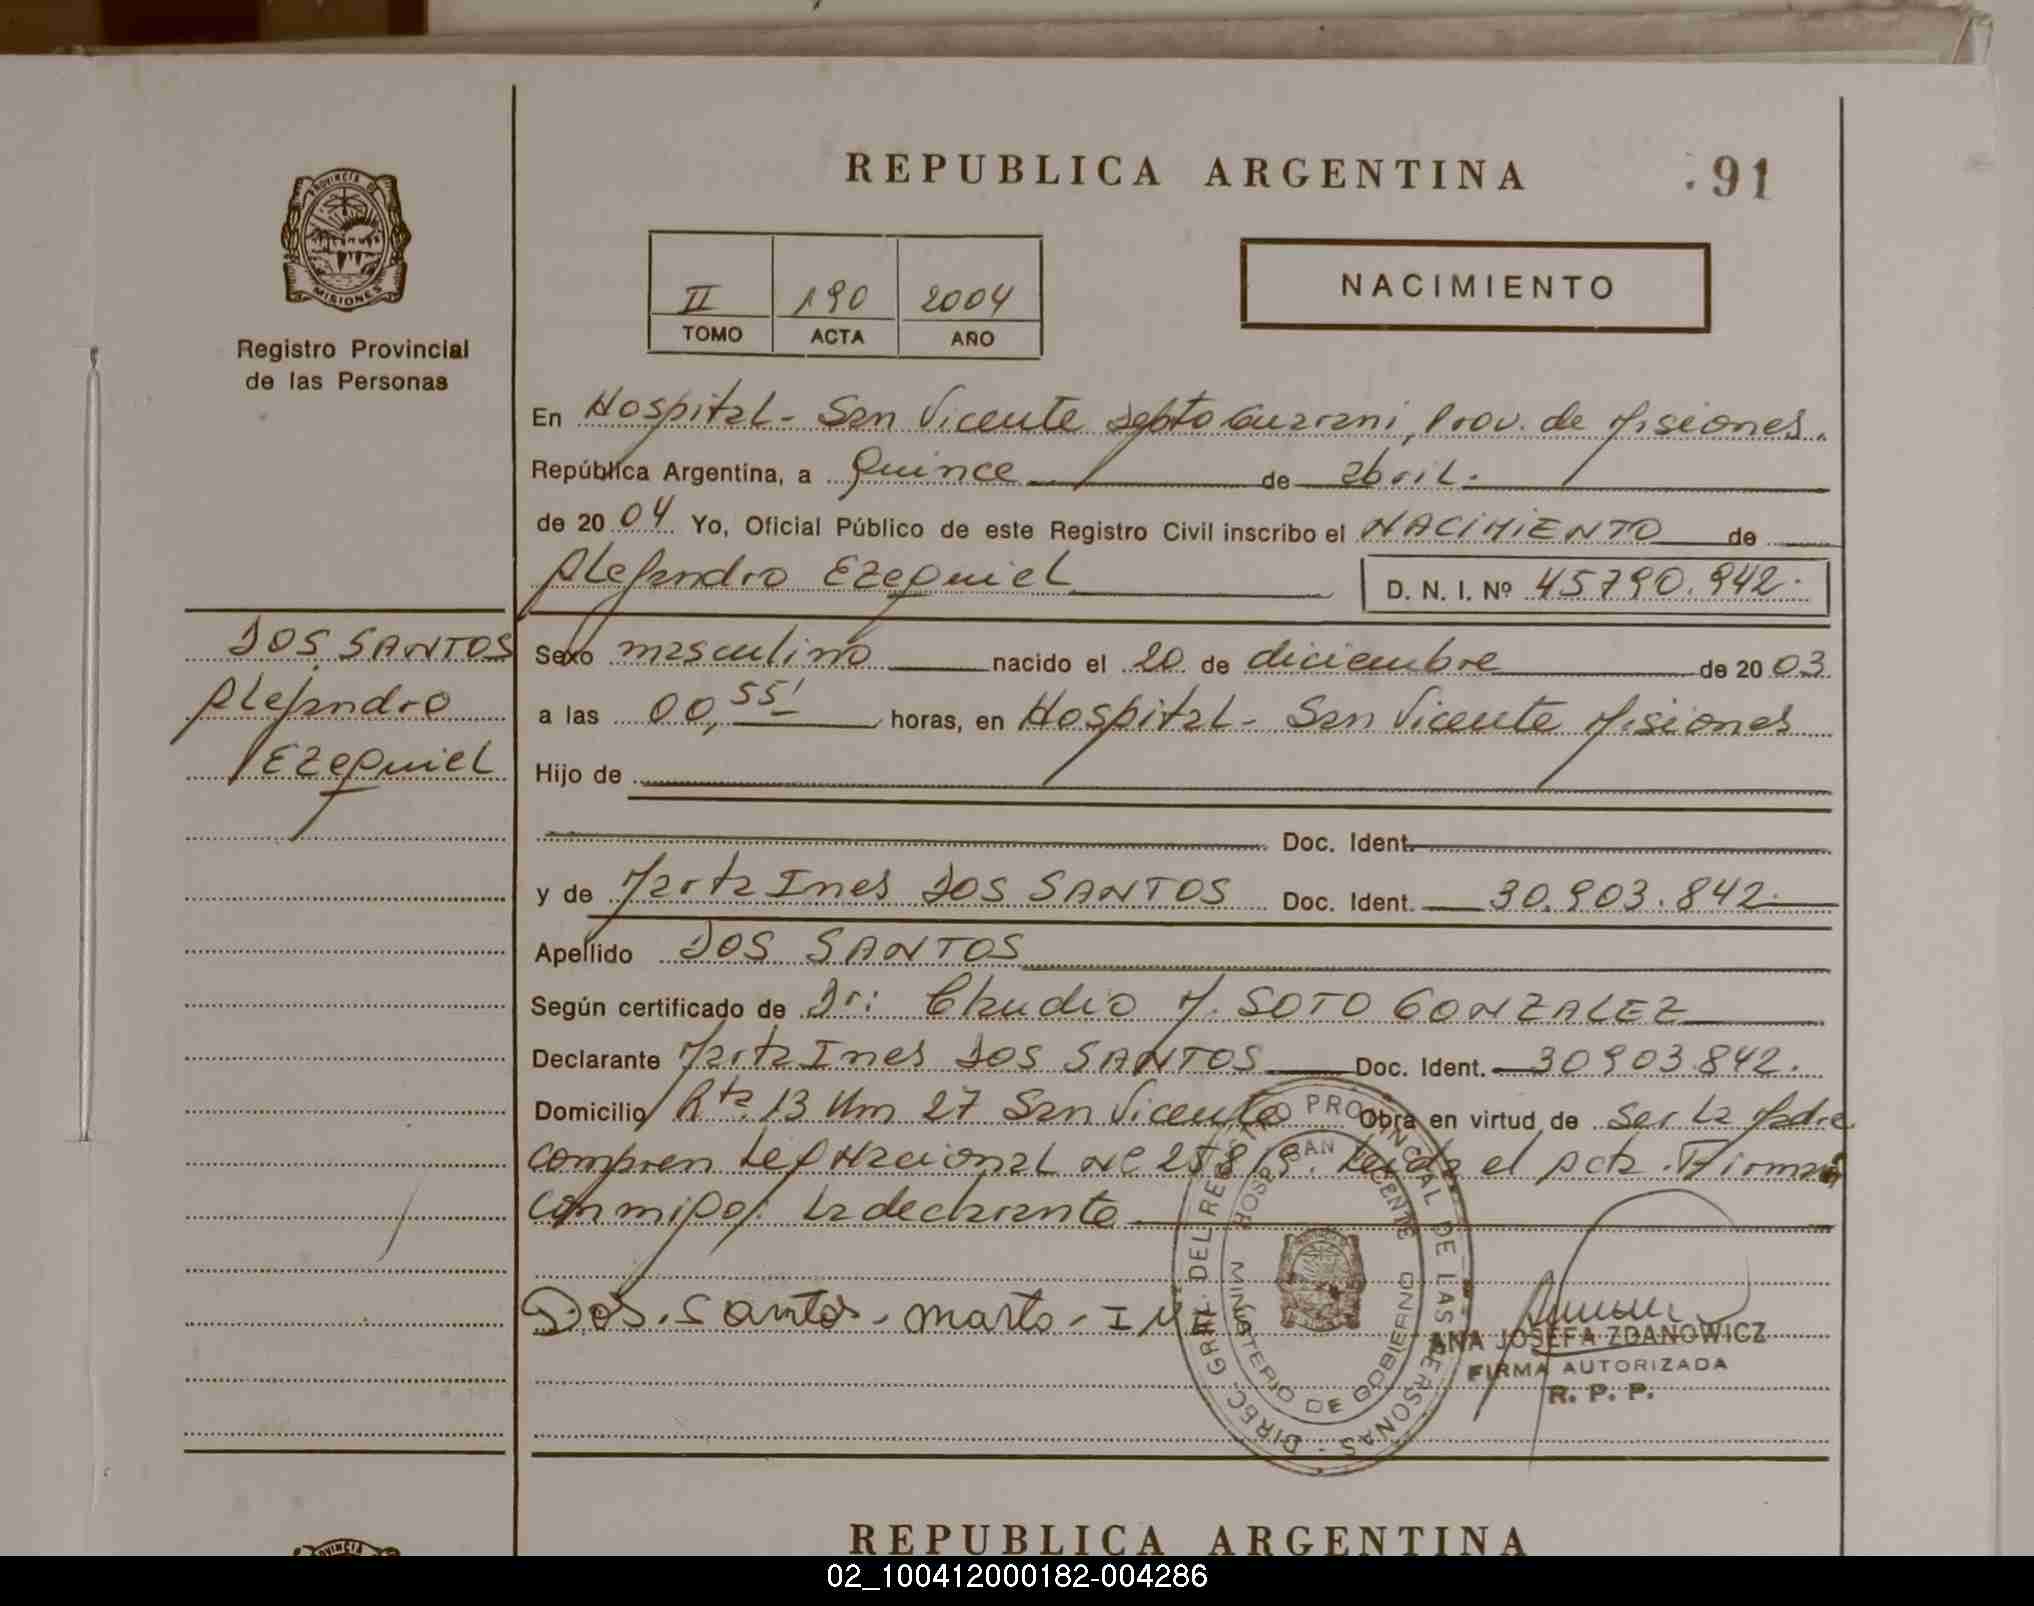 REPUBLICA ARGENTINA
.91
PROVINCIA D MISIONES
Registro Provincial
de las Personas
II 190 2004
TOMO ACTA AÑO
NACIMIENTO
En Hospital - San Vicente Depto Guarani, Prov. de Misiones.
República Argentina, a Quince de abril.
de 2004 Yo, Oficial Público de este Registro Civil inscribo el NACIMIENTO de
Alejandro Ezequiel D. N. I. Nº 45790.942.
DOS SANTOS
Alejandro
Ezequiel
Sexo masculino nacido el 20 de diciembre de 2003
a las 00,55' horas, en Hospital - San Vicente Misiones
Hijo de
Doc. Ident.
y de Marta Ines DOS SANTOS Doc. Ident. 30.903.842.
Apellido DOS SANTOS
Según certificado de Dr: Claudio M. SOTO GONZALEZ
Declarante Marta Ines DOS SANTOS Doc. Ident. 30903.842.
Domicilio Rta. 13 Km 27 San Vicente Obra en virtud de Ser la Madre
Nacional Nº 25819. Leida el Acta. Firman
conmigo: la declarante
Dos. Santos - marta - INES
DIREC. GRAL. DEL REGISTRO PROVINCIAL DE LAS PERSONAS
HOSP. SAN VICENTE
MINISTERIO DE GOBIERNO
ANA JOSEFA ZDANOWICZ
FIRMA AUTORIZADA
R. P. P.
REPUBLICA ARGENTINA
02_100412000182-004286